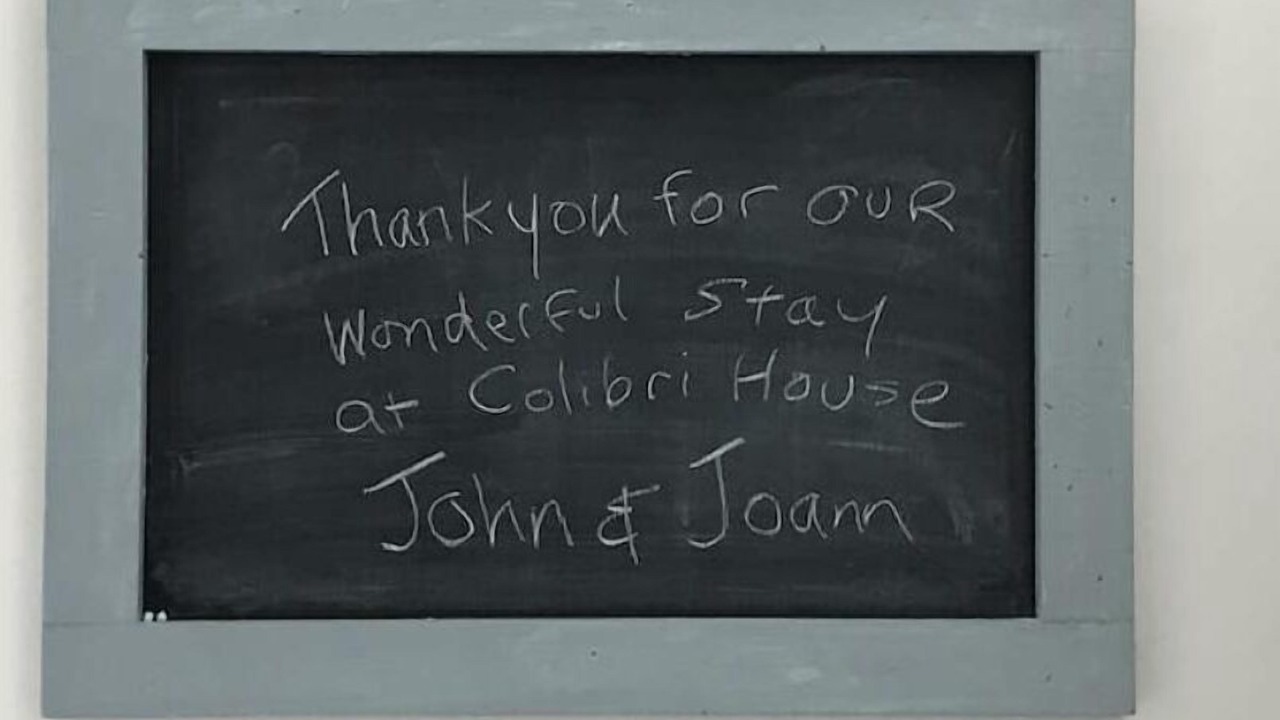 Thank you for OUR
Wonderful Stay
at Colibri House
John & Joann